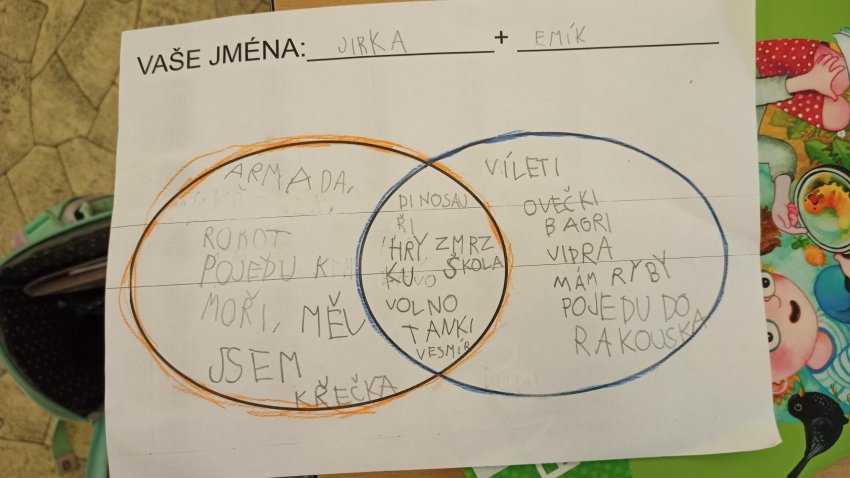 VAŠE JMÉNA: JIRKA + EMÍK
ARMADA,
ROBOT
POJEĎU K
MOŘI, MĚL
JSEM
KŘEČKA
DINOSAU
ŘI
HRY ZMRZ
KU ŠKOLA
VOLNO
TANKI
VESMÍR
VÍLETI
OVEČKI
BAGRI
VIDRA
MÁM RYBY
POJEDU DO
RAKOUSKA